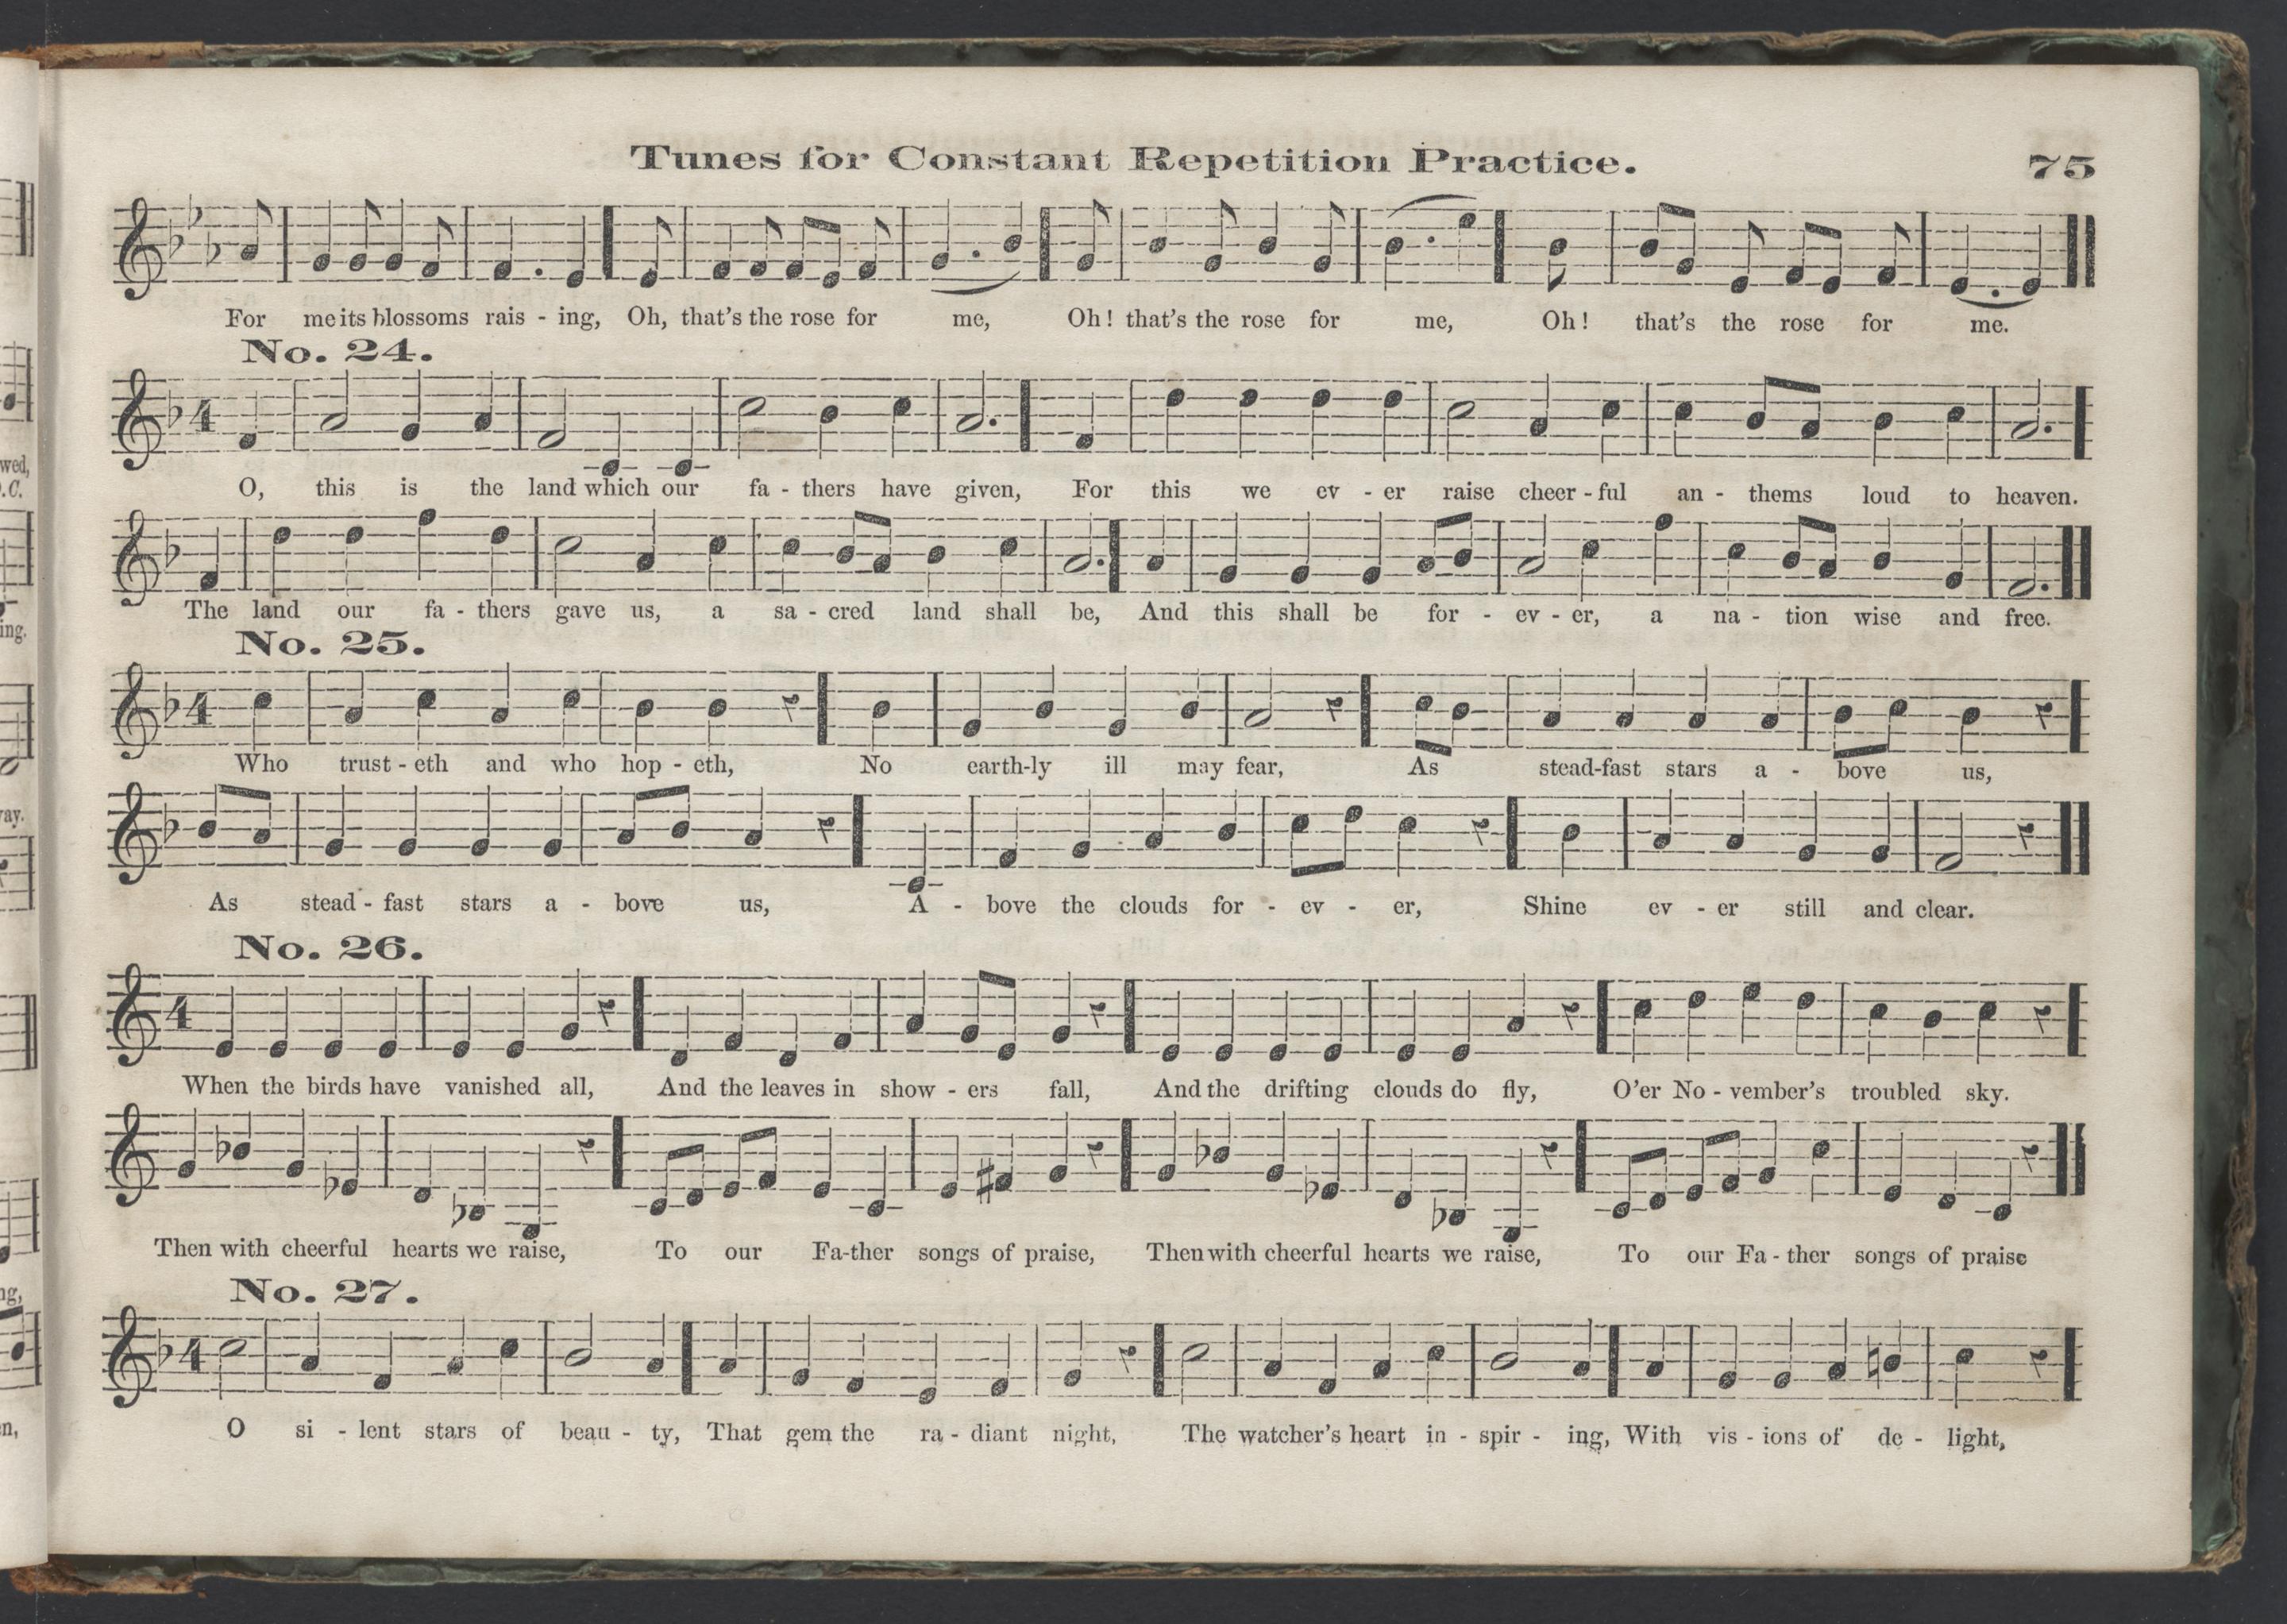 Tunes for Constant Repetition Practice. 75
For me its blossoms rais - ing, Oh, that's the rose for me, Oh! that's the rose for me, Oh! that's the rose for me.
No. 24.
4
O, this is the land which our fa - thers have given, For this we ev - er raise cheer - ful an - thems loud to heaven.
The land our fa - thers gave us, a sa - cred land shall be, And this shall be for - ev - er, a na - tion wise and free.
No. 25.
4
Who trust - eth and who hop - eth, No earth-ly ill may fear, As stead-fast stars a - bove us,
As stead - fast stars a - bove us, A - bove the clouds for - ev - er, Shine ev - er still and clear.
No. 26.
4
When the birds have vanished all, And the leaves in show - ers fall, And the drifting clouds do fly, O'er No - vember's troubled sky.
Then with cheerful hearts we raise, To our Fa-ther songs of praise, Then with cheerful hearts we raise, To our Fa - ther songs of praise
No. 27.
4
O si - lent stars of beau - ty, That gem the ra - diant night, The watcher's heart in - spir - ing, With vis - ions of de - light,